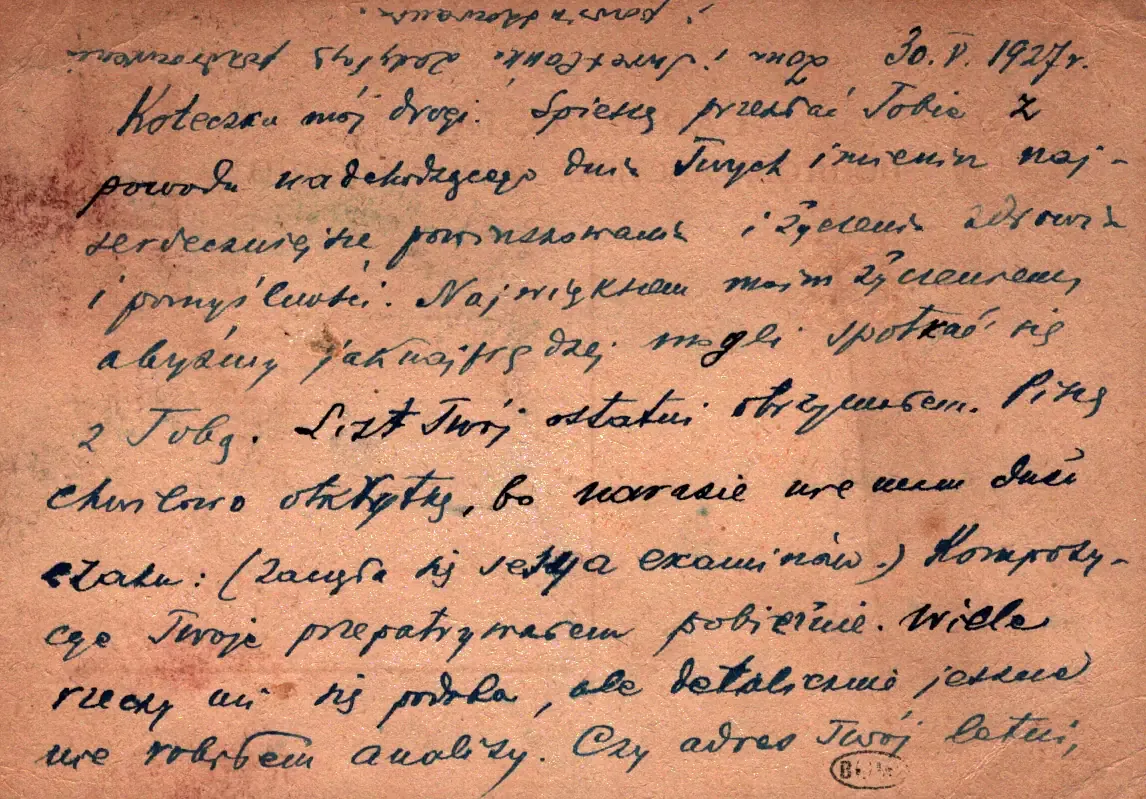 30. V. 1927 r.
Koteczku mój drogi. Spieszę przesłać Tobie z
powodu nadchodzącego dnia Twych imienin naj-
serdeczniejsze powinszowania i życzenia zdrowia
i pomyślności. Największem moim życzeniem,
abyśmy jaknajprędzej mogli spotkać się
z Tobą. List Twój ostatni otrzymałem. Piszę
chwilowo otkrytkę, bo narazie nie mam dużo
czasu: (zaczęła się sesya examinów.) Kompozy-
cye Twoje przepatrywałem pobieżnie. Wiele
rzeczy mi się podoba, ale detalicznie jeszcze
nie robiłem analizy. Czy adres Twój letni,
żona i zasyłają pozdrowienia
i powinszowania